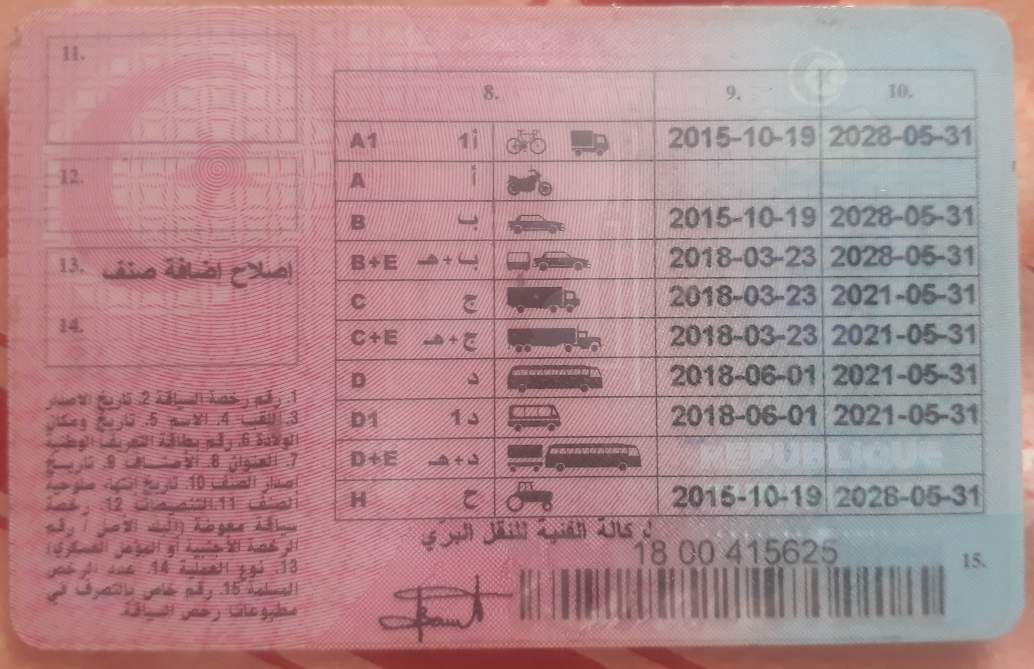 11.
12.
13. إصلاح إضافة صنف
14.
1. رقم رخصة السياقة 2. تاريخ الاصدار
3. اللقب 4. الاسم 5. تاريخ ومكان
الولادة 6. رقم بطاقة التعريف الوطنية
7. العنوان 8. الأصناف 9. تاريخ
اصدار الصنف 10. تاريخ انتهاء صلوحية
الصنف 11. التنصيصات 12. رخصة
سياقة معوضة (البلد الاصل / رقم
الرخصة الأجنبية أو المؤهل العسكري)
13. نوع العملية 14. عدد الرخص
المسلمة 15. رقم خاص بالتصرف في
مطبوعات رخص السياقة
8. 9. 10.
A1 أ1 2015-10-19 2028-05-31
A أ
B ب 2015-10-19 2028-05-31
B+E ب+هـ 2018-03-23 2028-05-31
C ج 2018-03-23 2021-05-31
C+E ج+هـ 2018-03-23 2021-05-31
D د 2018-06-01 2021-05-31
D1 د1 2018-06-01 2021-05-31
D+E د+هـ
REPUBLIQUE
H ح 2015-10-19 2028-05-31
كالة الفنية للنقل البرّي
18 00 415625
15.